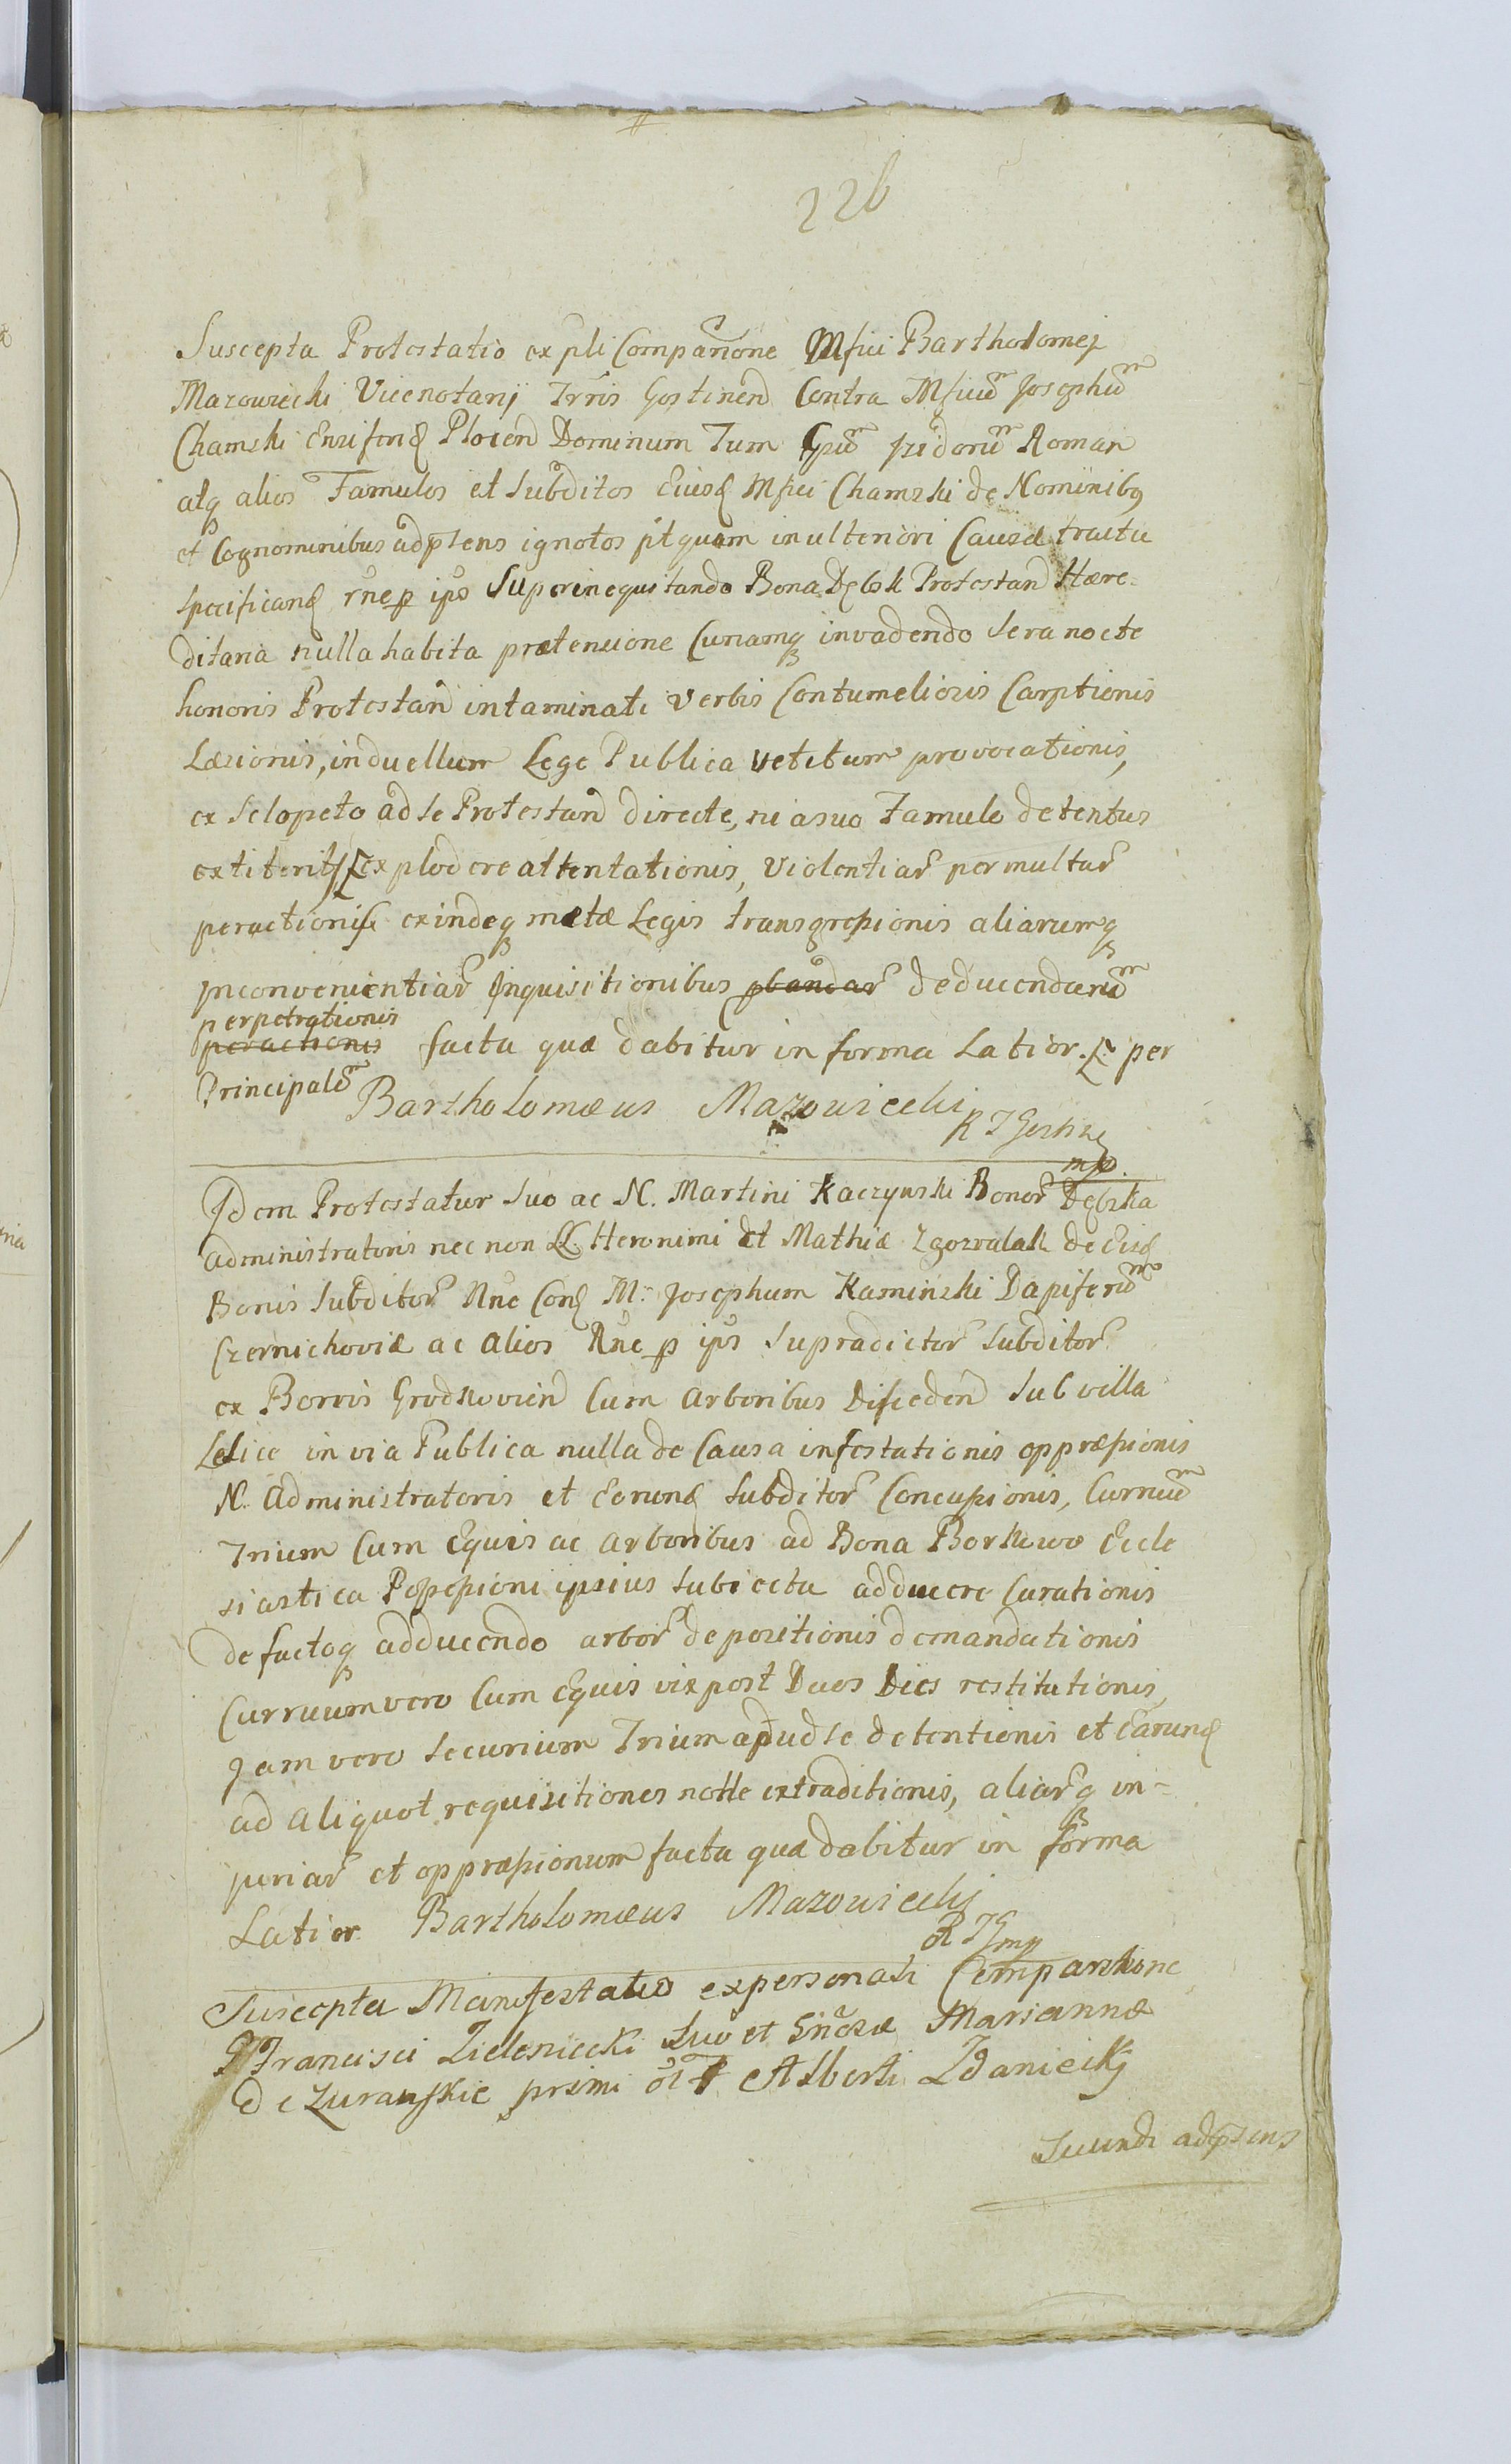 226
Suscepta Protestatio ex pli Compañone Mfici Bartholomej
Mazowiecki Vicenotarij Trris Gostinen Contra Mficu Josephu
Chamski Ensifer Plocen Dominum Tum Gsu Izidoru Roman
atq alios Famulos et Subditos Eiusd Mfici Chamski de Nominibq
et Cognominibus ad psens ignotos ptquam in ulteriori Causæ tractu
specificand rne p ips Superinequitando Bona Dębsk Protestan Hære-
ditaria nulla habita prætensione Curiamq invadendo sera nocte
honoris Protestan intaminati verbis Contumeliosis Carptionis
Læsionis, in duellum Lege Publica vetitum provocationis,
ex Sclopeto ad se Protestan directe, ni a suo Famulo detentus
extiterit explodere attentationis, Violentiar permultar
peractionis exindeq metæ Legis transgressionis aliarumq
inconvenientiar Inquisitionibus pbandar deducendaru
perpetrationis
peractionis facta quæ dabitur in forma Latior. per
Principale Bartholomæus Mazowiecki
R T Gostine
mp.
Idem Protestatur suo ac N. Martini Kaczynski Bonor Dębska
Administratoris nec non LL. Heronimi et Mathiæ Zgorzalak de Eisd
Bonis Subditor Nne Con M. Josephum Kaminski Dapiferu
Czernichoviæ ac Alios Rne p ips supradictor Subditor
ex Borris Grodkovien Cum Arboribus Disceden sub villa
Lelice in via Publica nulla de Causa infestationis oppræssionis
N. Administratoris et Eorund Subditor Concussionis, Curruu
Trium Cum Equis ac Arboribus ad Bona Borkowo Eccle
siastica Possessioni ipsius subiecta adducere Curationis
de factoq adducendo arbor depositionis demandationis
Curruum vero Cum Equis vix post Duos Dies restitutionis,
Jam vero Securium Trium apud se detentionis et Earund
ad aliquot requisitiones nolle extraditionis, aliarq in-
juriar et oppræssionum facta quæ dabitur in forma
Latior Bartholomæus Mazowiecki
R T G mp
Suscepta Manifestatio ex personali Comparitione
G Francisci Zieleniecki suo et Gnosæ Mariannæ
de Zurawskie primi Alberti Zdaniecki
Secundi ad psens